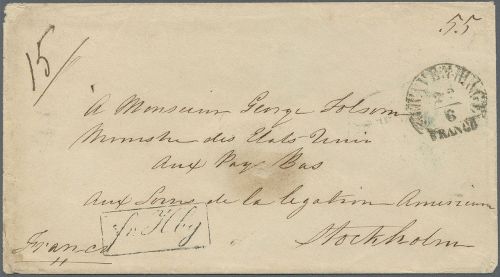 55
15/
'S GRAVENHAGE
22/6
FRANCO
A Monsieur George Folsom
Ministre des Etats Unis
Aux Pays Bas
Aux Soins de la legation Americain
fr. Hbg
Franco
Stockholm